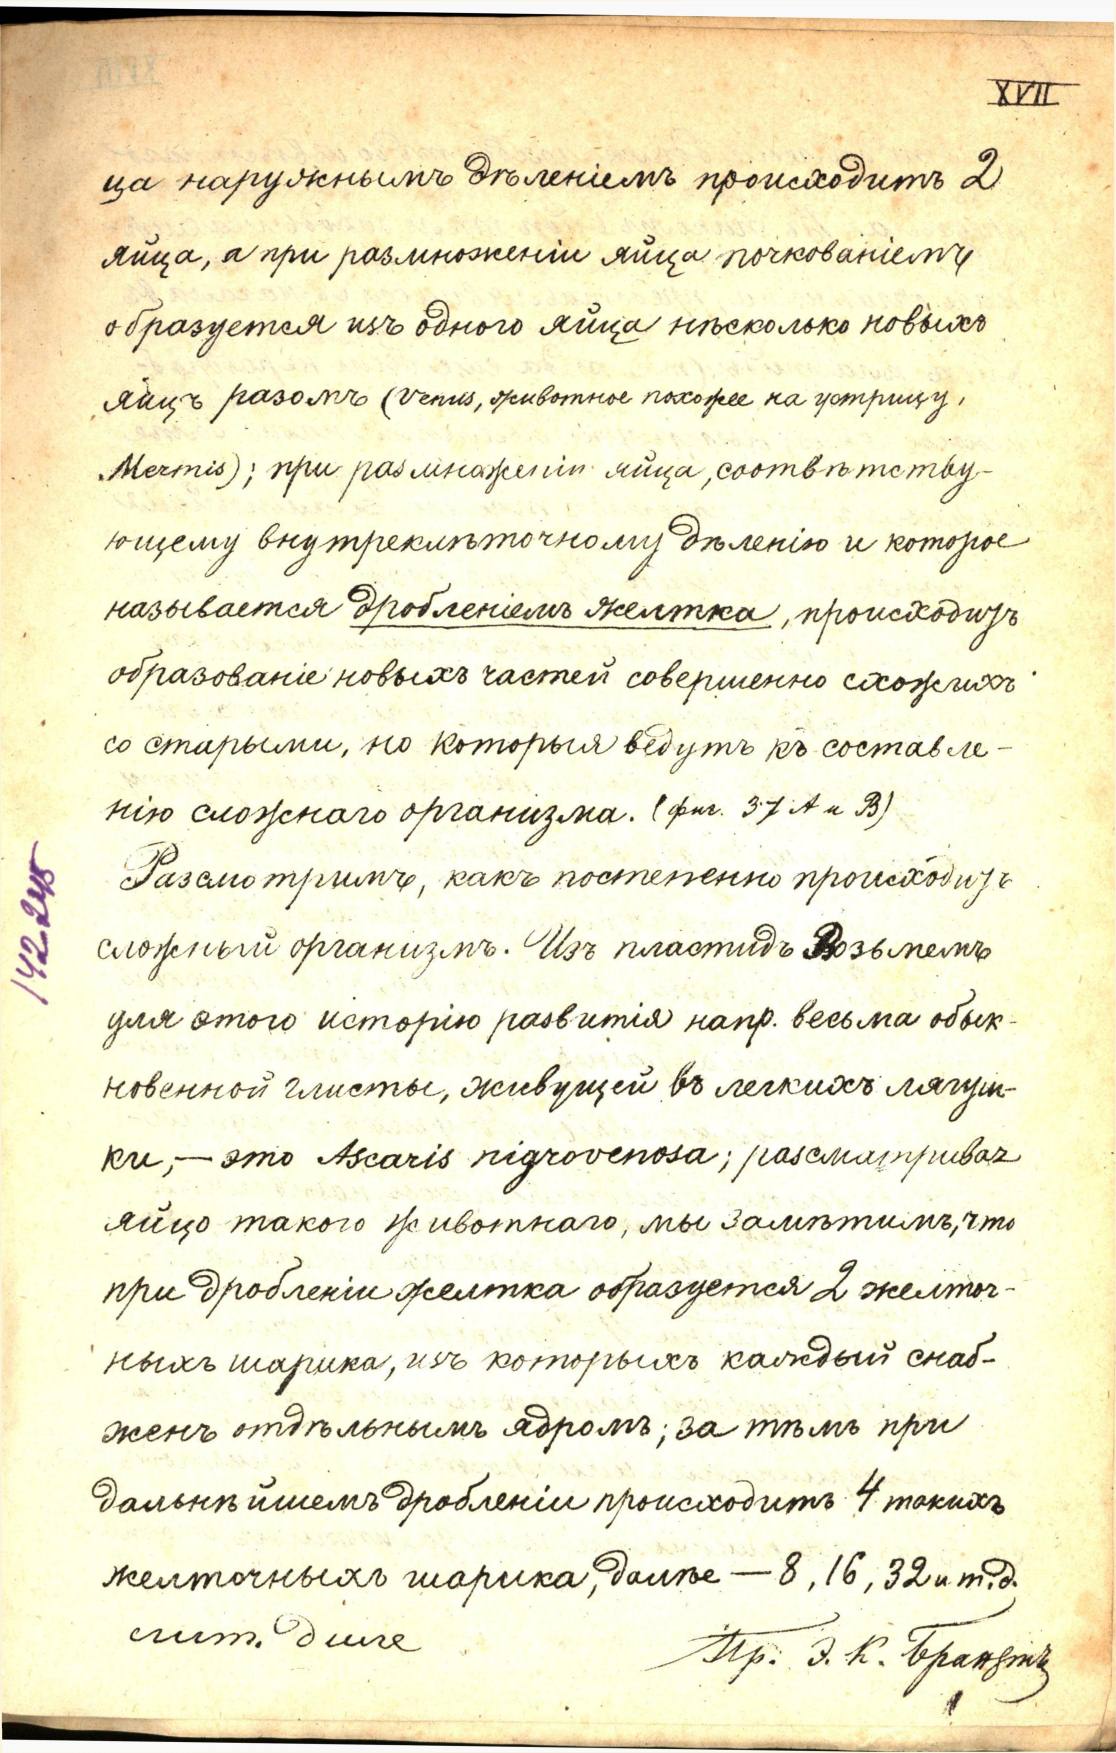 XVII
ца наружнымъ дѣленіемъ происходитъ 2
яйца, а при размноженіи яйца почкованіемъ
образуется изъ одного яйца нѣсколько новыхъ
яицъ разомъ (Venus, животное похожее на устрицу,
Mermis); при размноженіи яйца, соотвѣтству-
ющему внутреклѣточному дѣленію и которое
называется дробленіемъ желтка, происходитъ
образованіе новыхъ частей совершенно схожихъ
со старыми, но которыя ведутъ къ составле-
нію сложнаго организма. (фиг. 37 А и В)
Разсмотримъ, какъ постепенно происходитъ
сложный организмъ. Изъ пластидъ Возьмемъ
для этого исторію развитія напр. весьма обык-
новенной глисты, живущей въ легкихъ лягуш-
ки, — это Ascaris nigrovenosa; разсматривая
яйцо такого животнаго, мы замѣтимъ, что
при дробленіи желтка образуется 2 желточ-
ныхъ шарика, изъ которыхъ каждый снаб-
женъ отдѣльнымъ ядромъ; за тѣмъ при
дальнѣйшемъ дробленіи происходитъ 4 такихъ
желточныхъ шарика, далѣе — 8, 16, 32 и т. д.
лит.
Пр. Э. К. Брандтъ
142245